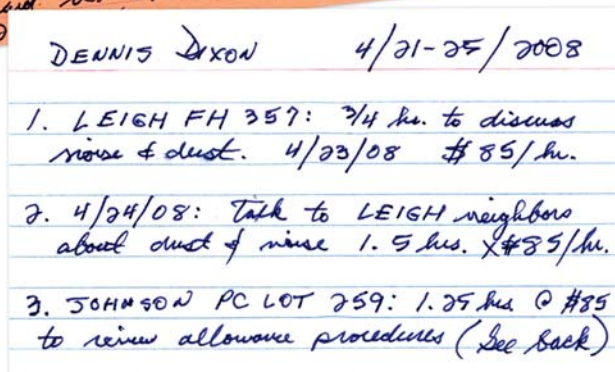 DENNIS DIXON 4/21-25/2008
1. LEIGH FH 357: 3/4 hr. to discuss
noise & dust. 4/23/08 $85/hr.
2. 4/24/08: Talk to LEIGH neighbors
about dust & noise 1.5 hrs. X $85/hr.
3. JOHNSON PC LOT 259: 1.25 hrs @ $85
to review allowance procedures (See back)